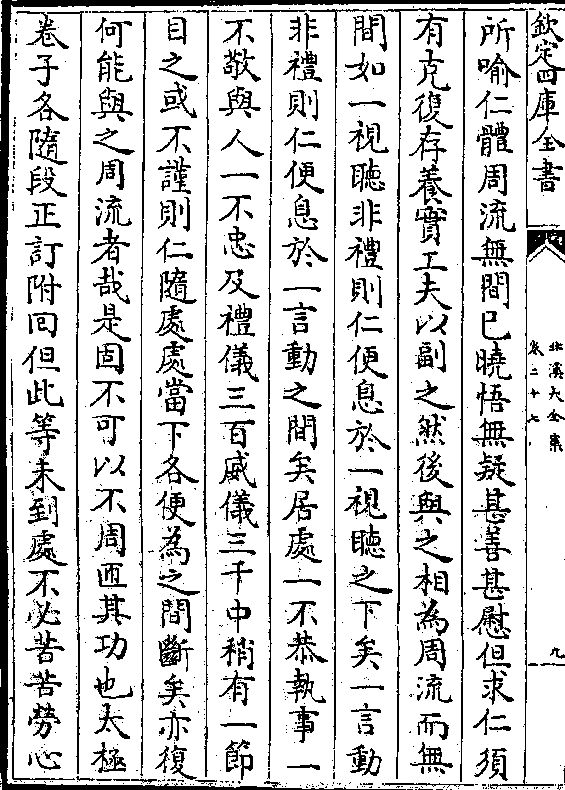 欽定四庫全書
北溪大全集
卷二十七
九
所喻仁體周流無間已曉悟無疑甚善甚慰但求仁須
有克復存養實工夫以副之然後與之相為周流而無
間如一視聽非禮則仁便息於一視聽之下矣一言動
非禮則仁便息於一言動之間矣居處一不恭執事一
不敬與人一不忠及禮儀三百威儀三千中稍有一節
目之或不謹則仁隨處處當下各便為之間斷矣亦復
何能與之周流者哉是固不可以不周匝其功也太極
卷子各隨段正訂附回但此等未到處不必苦苦勞心